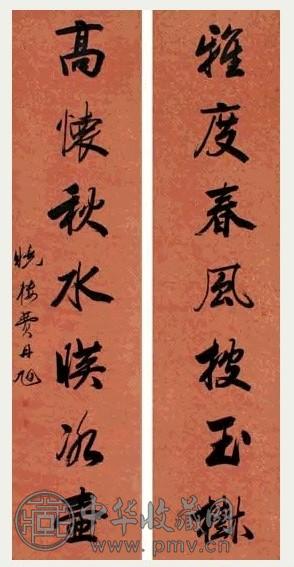 雅度春風披玉樹
高懷秋水暎冰壺
曉樓費丹旭
中华收藏网
www.pmv.cn